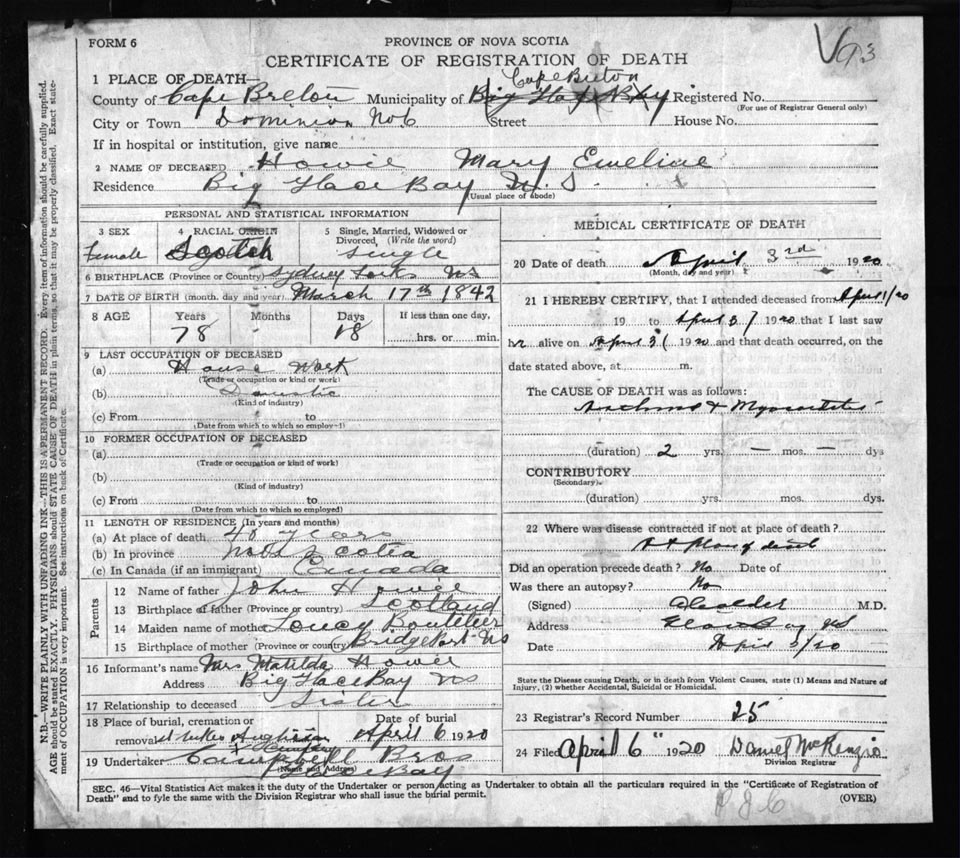 FORM 6
PROVINCE OF NOVA SCOTIA
CERTIFICATE OF REGISTRATION OF DEATH
1 PLACE OF DEATH—
Cape Breton
County of Cape Breton Municipality of Big Glace Bay Registered No.
(For use of Registrar General only)
City or Town Dominion No 6 Street House No.
If in hospital or institution, give name
2 NAME OF DECEASED Howie Mary Emeline
Residence Big Glace Bay N. S.
(Usual place of abode)
PERSONAL AND STATISTICAL INFORMATION
3 SEX 4 RACIAL ORIGIN 5 Single, Married, Widowed or Divorced, (Write the word)
Female Scotch Single
6 BIRTHPLACE (Province or Country) Sydney Forks NS
7 DATE OF BIRTH (month, day and year) March 17th 1842
8 AGE Years Months Days If less than one day,
78 18 hrs. or min.
9 LAST OCCUPATION OF DECEASED
(a) House Work
(Trade or occupation or kind or work)
(b) Domestic
(Kind of industry)
(c) From to
(Date from which to which so employ
10 FORMER OCCUPATION OF DECEASED
(a)
(Trade or occupation or kind of work)
(b)
(Kind of industry)
(c) From to
(Date from which to which so employed)
11 LENGTH OF RESIDENCE (In years and months)
(a) At place of death 40 years
(b) In province Nova Scotia
(c) In Canada (if an immigrant) Canada
Parents
12 Name of father John Howie
13 Birthplace of father (Province or country) Scotland
14 Maiden name of mother Loucy Boutelier
15 Birthplace of mother (Province or country) Bridgeport NS
16 Informant's name Mrs Matilda Howie
Address Big Glace Bay NS
17 Relationship to deceased Sister
18 Place of burial, cremation or removal Date of burial
St Lukes Anglican April 6 1920
Cemetery
19 Undertaker Campbell Bros
(Name and Address)
Glace Bay
MEDICAL CERTIFICATE OF DEATH
20 Date of death April 3rd 1920
(Month, day and year)
21 I HEREBY CERTIFY, that I attended deceased from April 1/20
19 to April 3/ 1920 that I last saw
her alive on April 3/ 1920 and that death occurred, on the
date stated above, at m.
The CAUSE OF DEATH was as follows:
Asthma & Myocarditis
(duration) 2 yrs. — mos. — dys
CONTRIBUTORY
(Secondary)
(duration) yrs. mos. dys.
22 Where was disease contracted if not at place of death?
At place of death
Did an operation precede death? No Date of
Was there an autopsy? No
(Signed) M.D.
Address Glace Bay NS
Date April 3/20
State the Disease causing Death, or in death from Violent Causes, state (1) Means and Nature of
Injury, (2) whether Accidental, Suicidal or Homicidal.
23 Registrar's Record Number 25
24 Filed April 6" 1920 Daniel McKenzie
Division Registrar
SEC. 46—Vital Statistics Act makes it the duty of the Undertaker or person acting as Undertaker to obtain all the particulars required in the "Certificate of Registration of
Death" and to fyle the same with the Division Registrar who shall issue the burial permit.
(OVER)
N.B.—WRITE PLAINLY WITH UNFADING INK—THIS IS A PERMANENT RECORD. Every item of information should be carefully supplied.
AGE should be stated EXACTLY. PHYSICIANS should STATE CAUSE OF DEATH in plain terms, so that it may be properly classified. Exact state-
ment of OCCUPATION is very important. See instructions on back of Certificate.